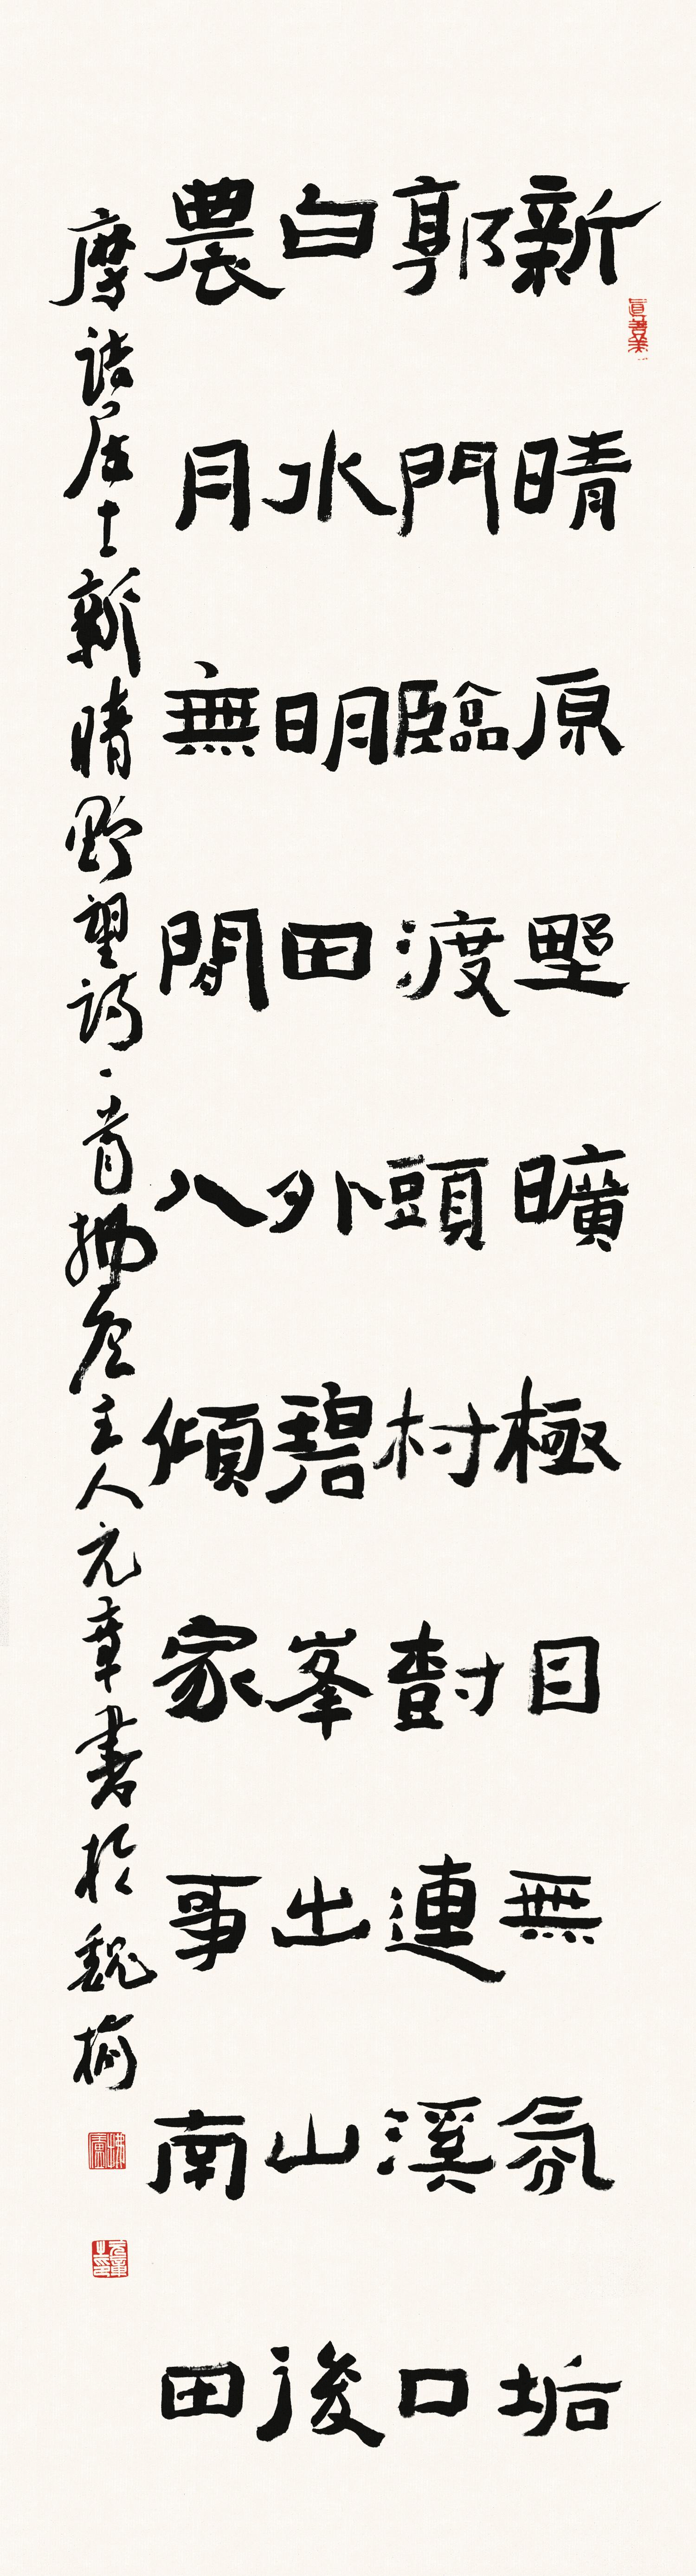 新晴原野曠極目無氛垢
郭門臨渡頭村樹連溪口
白水明田外碧峯出山後
農月無閒人傾家事南田
摩詰居士新晴野望詩一首拂廬主人元章書於魏榆
真善美